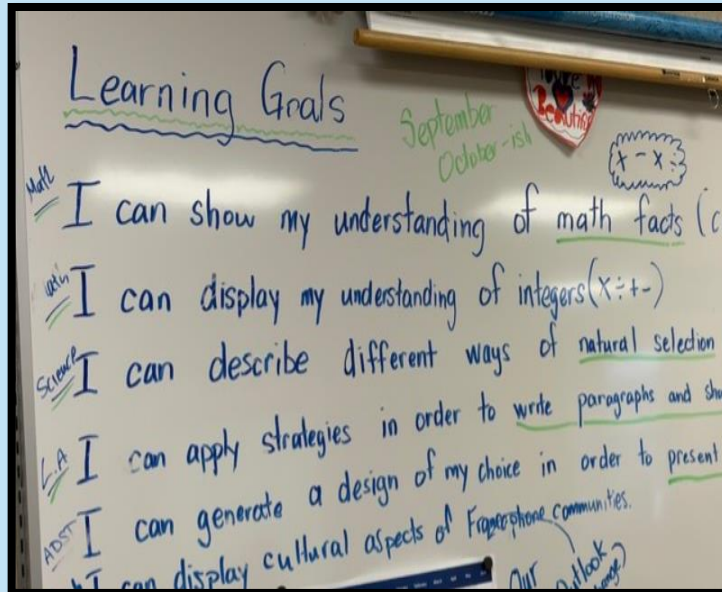 Learning Goals
September
October-ish
Beautiful
+ - × ÷
Math I can show my understanding of math facts (c
Math I can display my understanding of integers (×÷+-)
Science I can describe different ways of natural selection
L.A I can apply strategies in order to write paragraphs and sho
ADST I can generate a design of my choice in order to present
I can display cultural aspects of Francophone communities.
Our
Outlook